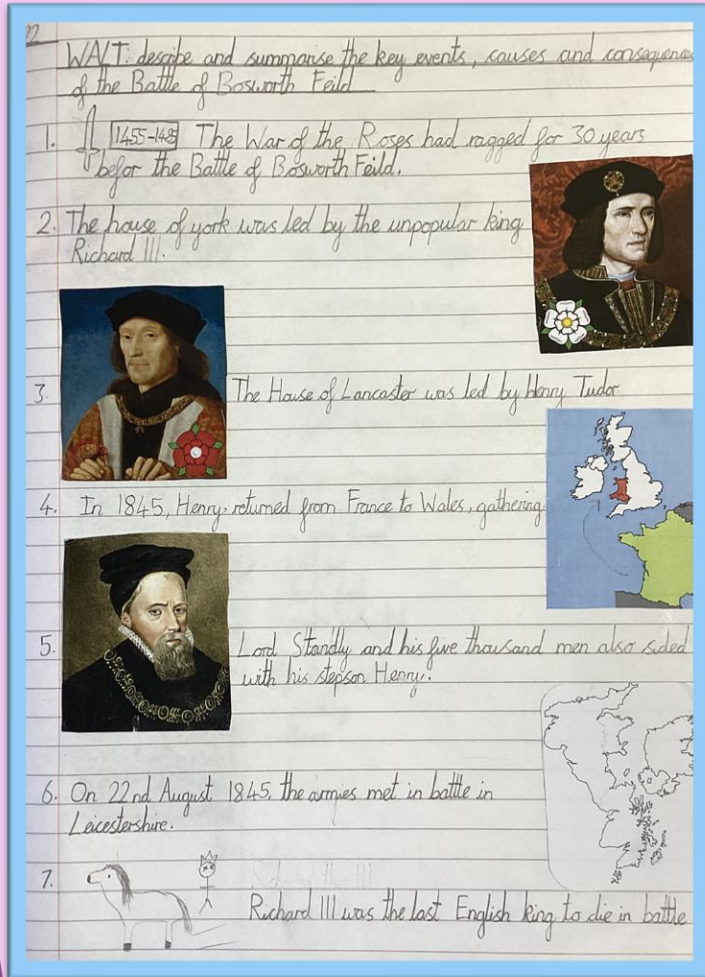 22
WALT: descibe and summarise the key events, causes and consequences
of the Battle of Bosworth Feild
1. 1455-1485 The War of the Roses had ragged for 30 years
befor the Battle of Bosworth Feild.
2. The house of york was led by the unpopular king
Richard III.
3. The House of Lancaster was led by Henry Tudor.
4. In 1845, Henry returned from France to Wales, gathering
5. Lord Standly and his five thousand men also sided
with his stepson Henry.
6. On 22nd August 1845, the armies met in battle in
Leicestershire.
7. Richard III was the last English king to die in battle